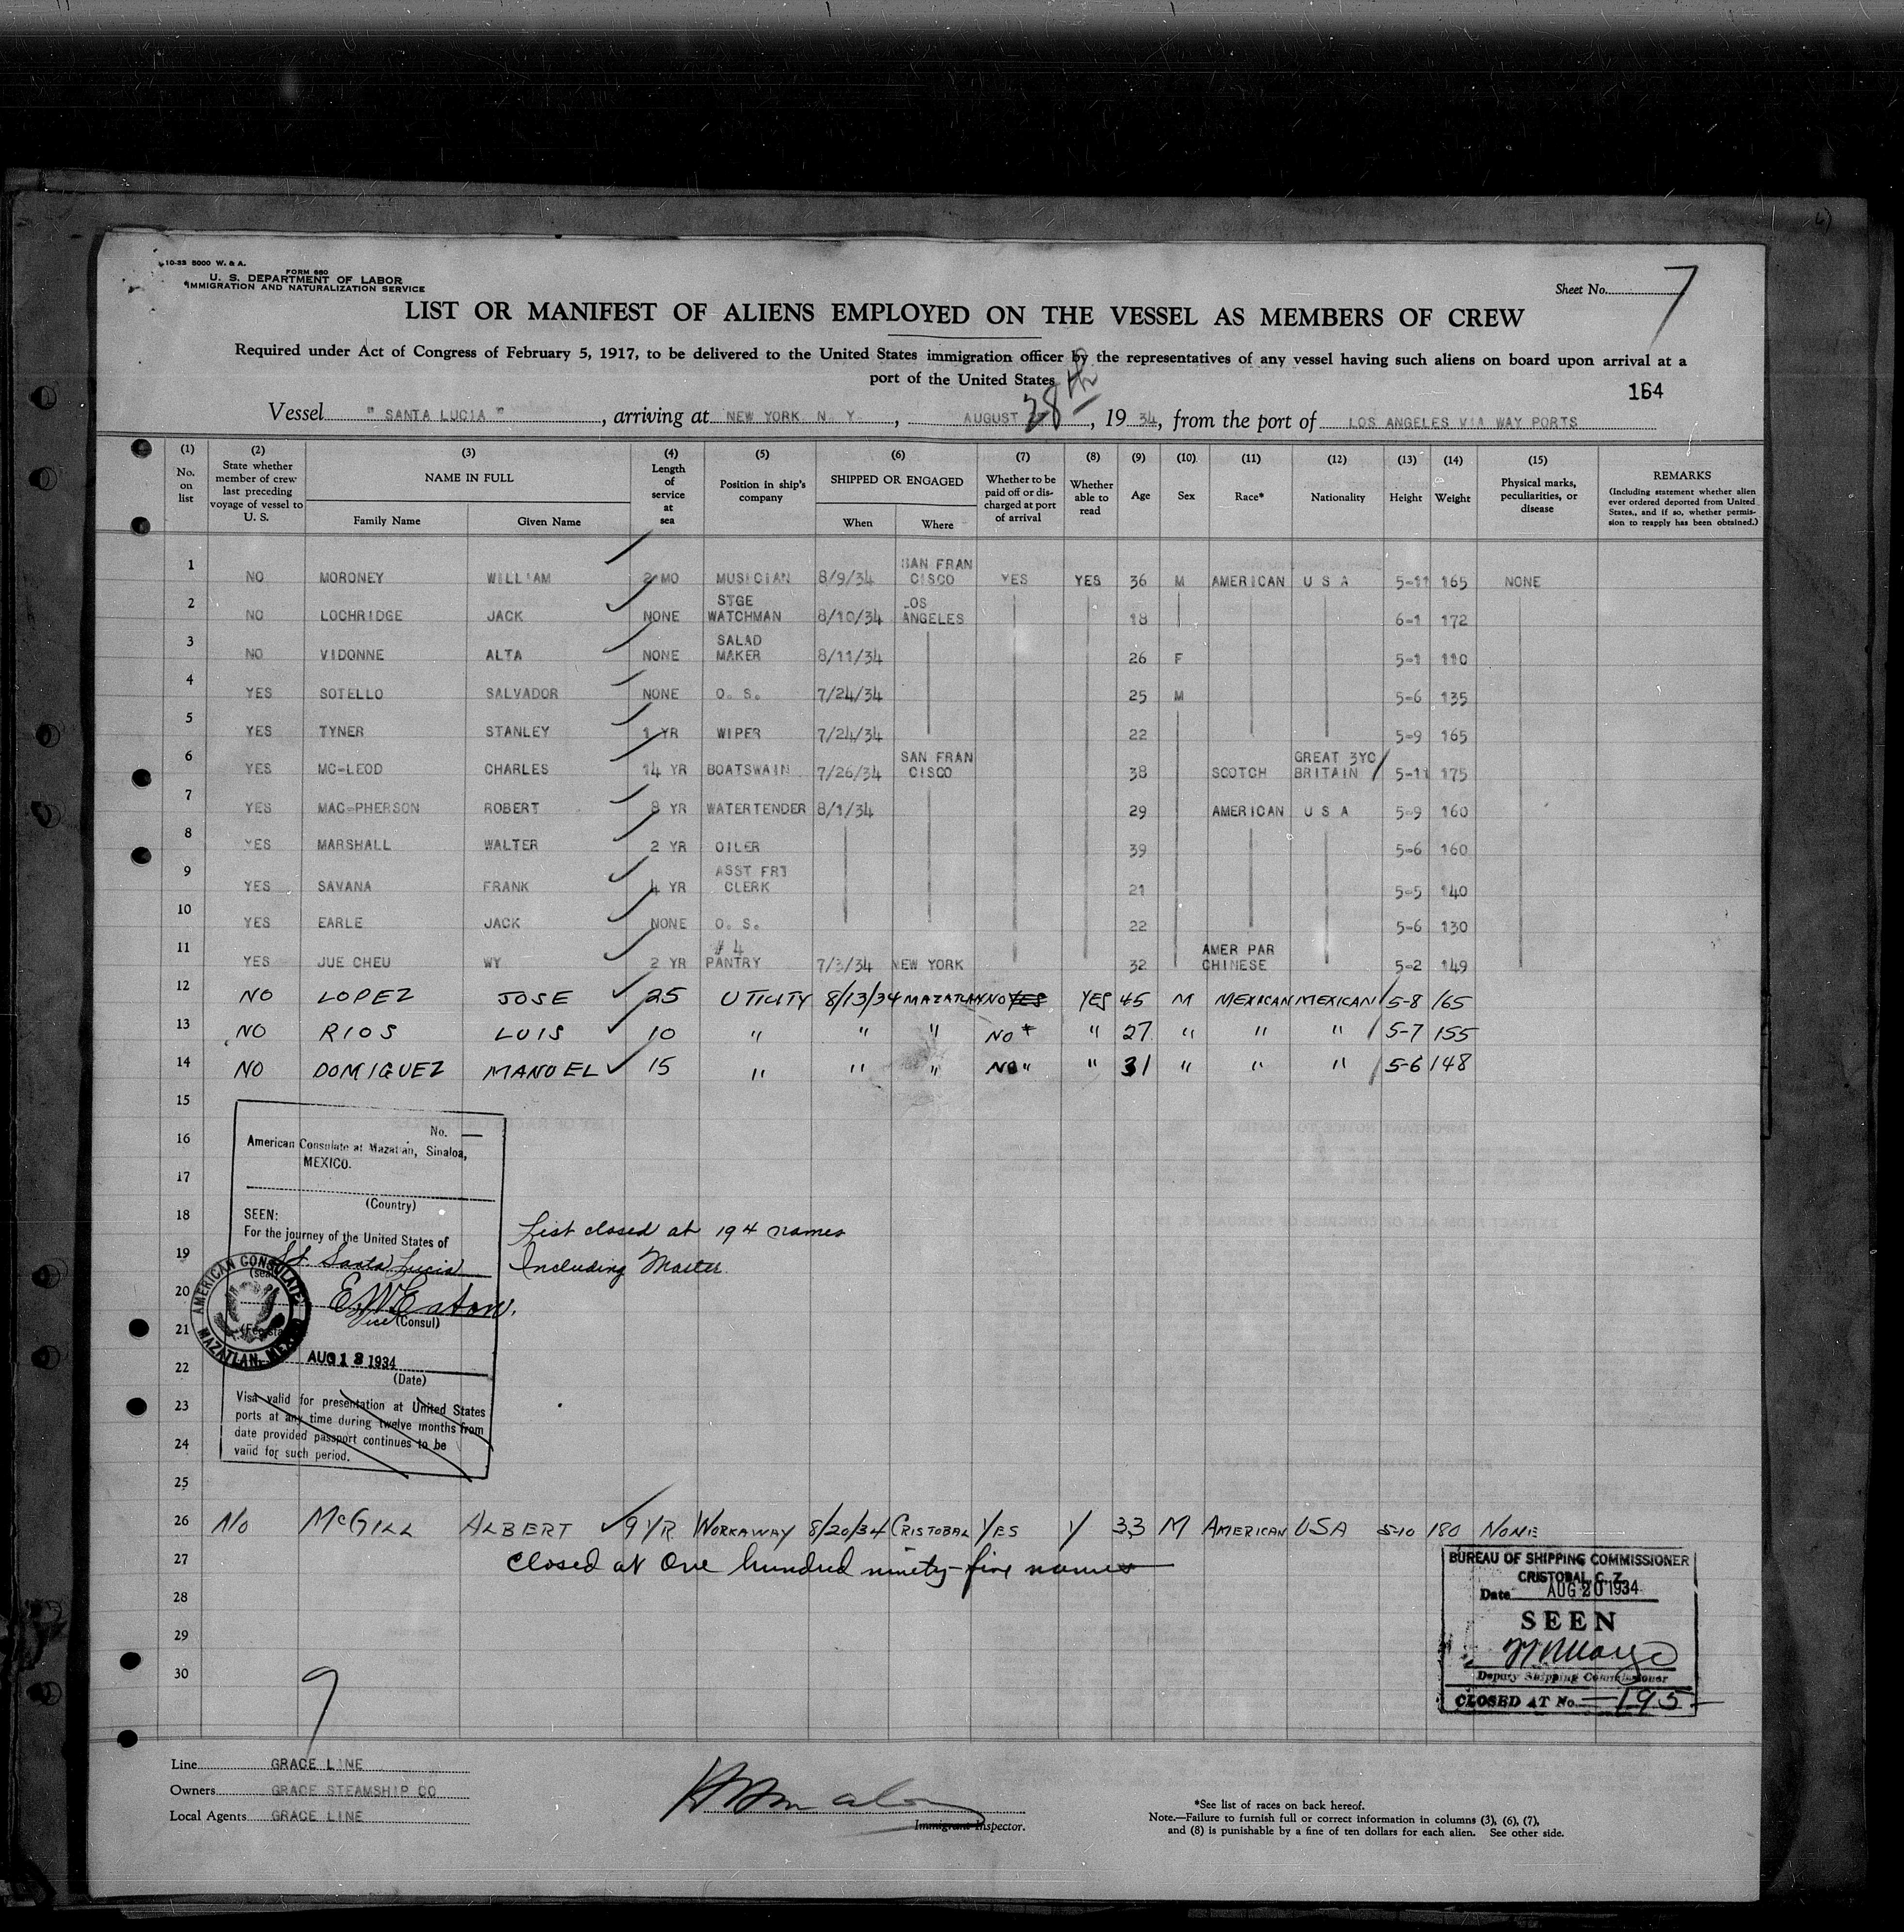 10-33 5000 W. & A.
FORM 680
U. S. DEPARTMENT OF LABOR
IMMIGRATION AND NATURALIZATION SERVICE
Sheet No. 7
LIST OR MANIFEST OF ALIENS EMPLOYED ON THE VESSEL AS MEMBERS OF CREW
Required under Act of Congress of February 5, 1917, to be delivered to the United States immigration officer by the representatives of any vessel having such aliens on board upon arrival at a
port of the United States
164
Vessel " SANTA LUCIA ", arriving at NEW YORK, N. Y., AUGUST 28th, 19 34, from the port of LOS ANGELES VIA WAY PORTS
(1) No. on list
(2) State whether member of crew last preceding voyage of vessel to U. S.
(3) NAME IN FULL Family Name Given Name
(4) Length of service at sea
(5) Position in ship's company
(6) SHIPPED OR ENGAGED When Where
(7) Whether to be paid off or discharged at port of arrival
(8) Whether able to read
(9) Age
(10) Sex
(11) Race*
(12) Nationality
(13) Height
(14) Weight
(15) Physical marks, peculiarities, or disease
REMARKS (Including statement whether alien ever ordered deported from United States., and if so, whether permission to reapply has been obtained.)
1 NO MORONEY WILLIAM 2 MO MUSICIAN 8/9/34 SAN FRAN CISCO YES YES 36 M AMERICAN U S A 5-11 165 NONE
2 NO LOCHRIDGE JACK NONE STGE WATCHMAN 8/10/34 LOS ANGELES 18 6-1 172
3 NO VIDONNE ALTA NONE SALAD MAKER 8/11/34 26 F 5-1 110
4 YES SOTELLO SALVADOR NONE O. S. 7/24/34 25 M 5-6 135
5 YES TYNER STANLEY 1 YR WIPER 7/24/34 22 5-9 165
6 YES MC-LEOD CHARLES 14 YR BOATSWAIN 7/26/34 SAN FRAN CISCO 38 SCOTCH GREAT 3YC BRITAIN 5-11 175
7 YES MAC-PHERSON ROBERT 8 YR WATERTENDER 8/1/34 29 AMERICAN U S A 5-9 160
8 YES MARSHALL WALTER 2 YR OILER 39 5-6 160
9 YES SAVANA FRANK 4 YR ASST FRT CLERK 21 5-5 140
10 YES EARLE JACK NONE O. S. 22 5-6 130
11 YES JUE CHEU WY 2 YR # 4 PANTRY 7/3/34 NEW YORK 32 AMER PAR CHINESE 5-2 149
12 NO LOPEZ JOSE 25 UTILITY 8/13/34 MAZATLAN NO YES YES 45 M MEXICAN MEXICAN 5-8 165
13 NO RIOS LUIS 10 " " " NO " " 27 " " " 5-7 155
14 NO DOMIGUEZ MANUEL 15 " " " NO " " 31 " " " 5-6 148
15
16
17
18
19
20
21
22
23
24
25
No. —
American Consulate at Mazatlan, Sinaloa,
MEXICO.
(Country)
SEEN:
For the journey of the United States of
SS. Santa Lucia
(seal)
E W Eaton.
Vice (Consul)
AMERICAN CONSULATE
MAZATLAN, MEXICO
AUG 13 1934
(Date)
Visa valid for presentation at United States
ports at any time during twelve months from
date provided passport continues to be
valid for such period.
List closed at 194 names
Including Master.
26 NO McGILL ALBERT 9 YR WORKAWAY 8/20/34 CRISTOBAL YES Y 33 M AMERICAN USA 5-10 180 NONE
27 Closed at One hundred ninety-five names
28
29
30
BUREAU OF SHIPPING COMMISSIONER
CRISTOBAL, C. Z.
Date AUG 20 1934
SEEN
Deputy Shipping Commissioner
CLOSED AT No. 195
9
Line GRACE LINE
Owners GRACE STEAMSHIP CO
Local Agents GRACE LINE
Immigrant Inspector.
*See list of races on back hereof.
Note.—Failure to furnish full or correct information in columns (3), (6), (7),
and (8) is punishable by a fine of ten dollars for each alien. See other side.